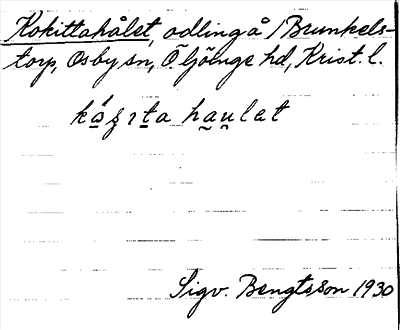 Kokittahålet, odling å / Brunkels-
torp, Osby sn, Ö. Göinge hd, Krist. l.
Sigv. Bengtsson 1930